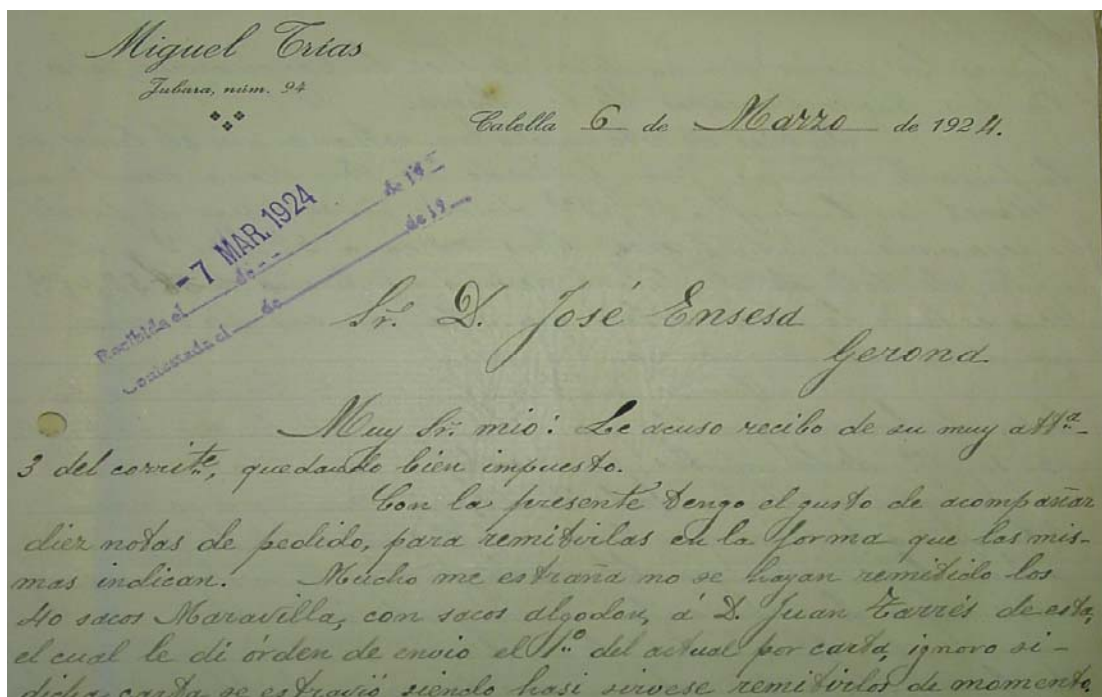 Miguel Trías
Jubara, núm. 94
Calella 6 de Marzo de 1924.
- 7 MAR. 1924
Recibida el de de 19
Contestada el de de 19
Sr. D. José Ensesa
Gerona
Muy Sr. mio: Le acuso recibo de su muy att.ª
3 del corrit.e, quedando bien impuesto.
Con la presente tengo el gusto de acompañar
diez notas de pedido, para remitirlas en la forma que las mis-
mas indican. Mucho me estraña no se hayan remitido los
40 sacos Maravilla, con sacos algodon, á D. Juan Tarrés de esta,
el cual le di órden de envio el 1.º del actual por carta, ignoro si-
dicha carta se estravió siendo hasi sirvese remitirlos de momento.